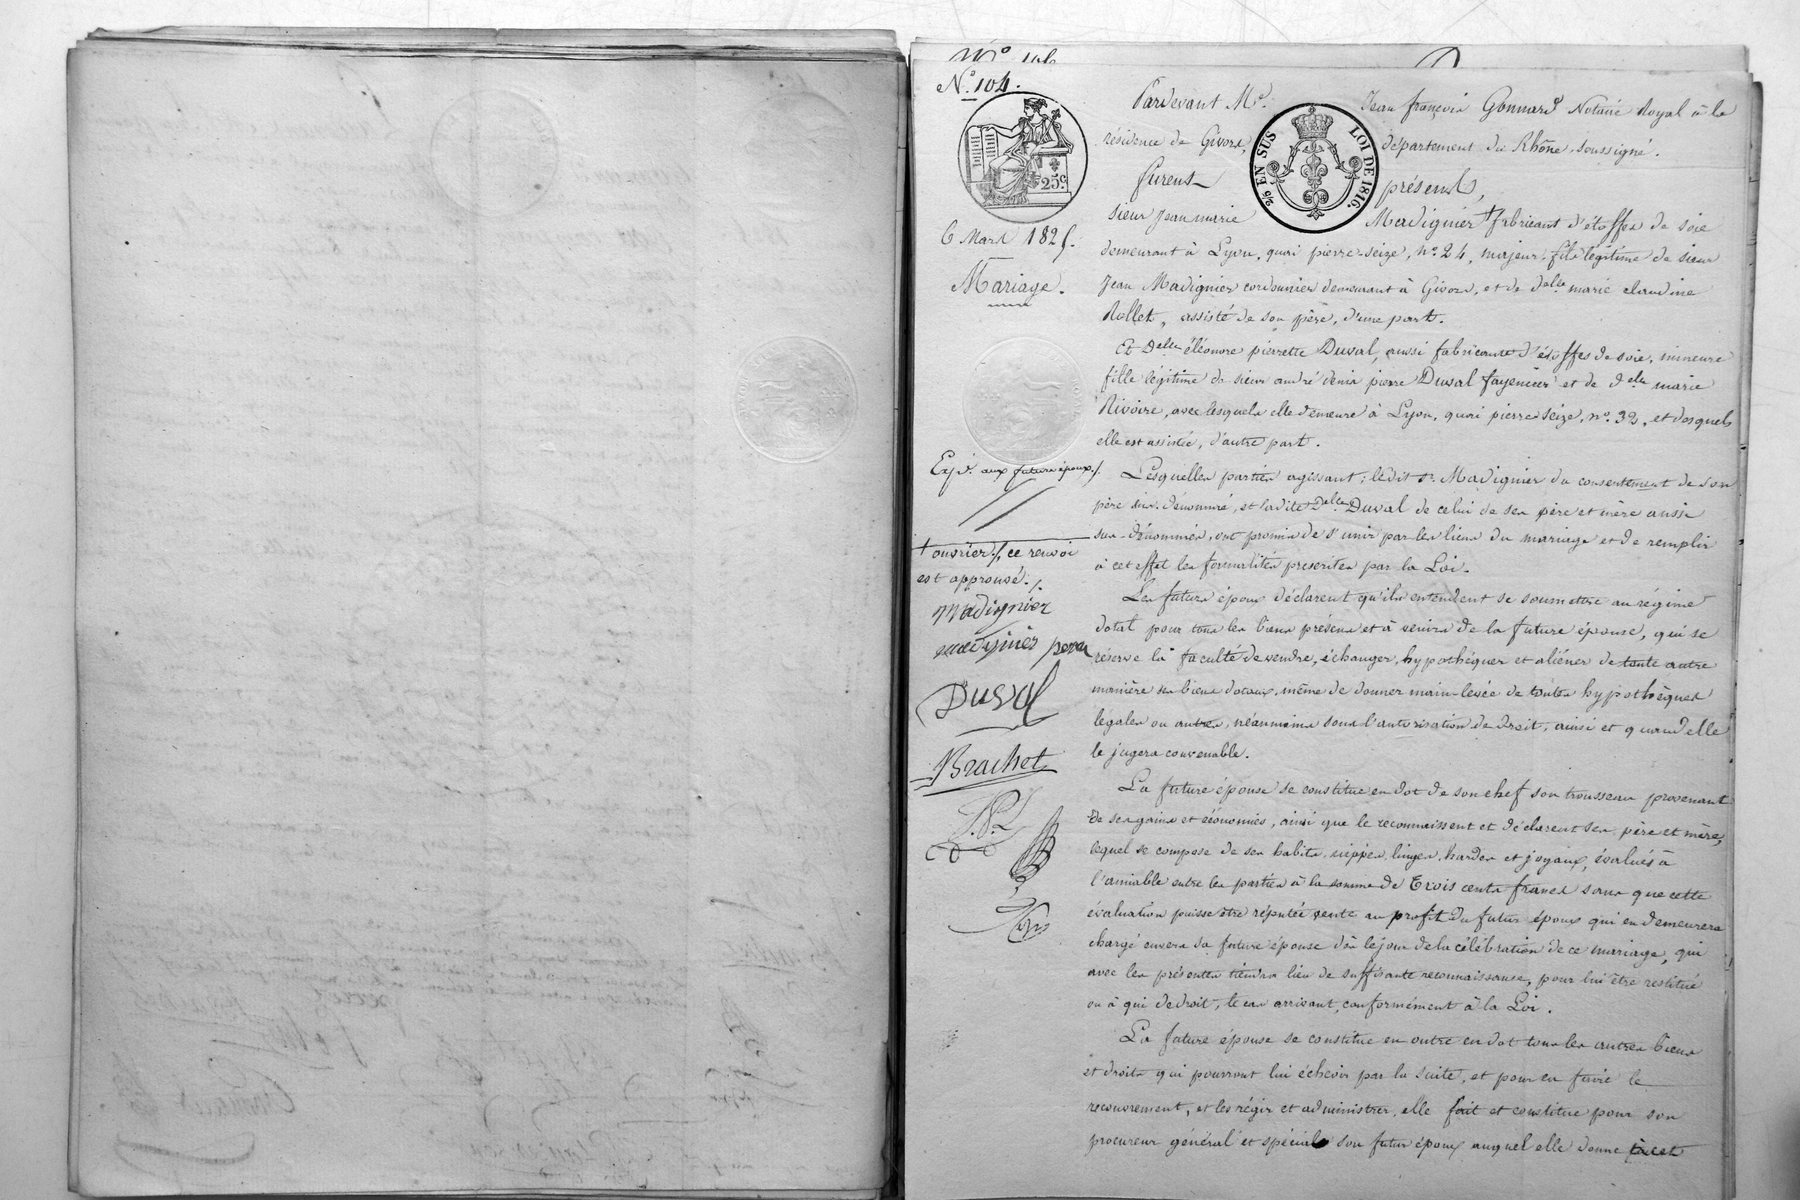 N.º 106
N.º 104.
25c.
2/º EN SUS
LOI DE 1816.
6 Mars 1825.
Mariage.
Exp.é aux futurs époux./.
† ouvrier ./. ce renvoi
est approuvé ./.
Madignier
madignier perre
Duval
Brachet
Pardevant M.e Jean françois Gonnard Notaire Royal à la
résidence de Givors, département du Rhône, soussigné.
furent présents,
sieur jean marie Madignier † fabricant d'étoffes de soie
demeurant à Lyon, quai pierre-seize, n.º 24, majeur, fils légitime de sieur
Jean Madignier cordonnier demeurant à Givors, et de delle marie claudine
Rollet, assisté de son père, d'une part.
Et Delle éléonore pierrette Duval, aussi fabricante d'étoffes de soie, mineure
fille légitime de sieur andré denis pierre Duval fayencier et de delle marie
Rivoire, avec lesquels elle demeure à Lyon, quai pierre seize, n.º 32, et desquels
elle est assistée, d'autre part.
Lesquelles parties agissant; ledit s.r Madignier du consentement de son
père sus-dénommé, et ladite Delle Duval de celui de ses père et mère aussi
sus-dénommés, ont promis de s'unir par les liens du mariage et de remplir
à cet effet les formalités prescrites par la Loi.
Les futurs époux déclarent qu'ils entendent se soumettre au régime
dotal pour tous les biens présens et à venirs de la future épouse, qui se
réserve la faculté de vendre, échanger, hypothéquer et aliéner de toute autre
manière ses biens dotaux, même de donner main-levée de toutes hypothèques
légales ou autres, néanmoins sous l'autorisation de droit, ainsi et quand elle
le jugera convenable.
La future épouse se constitue en dot de son chef son trousseau provenant
de ses gains et économies, ainsi que le reconnaissent et déclarent ses père et mère,
lequel se compose de ses habits, nippes, linges, hardes et joyaux, évalués à
l'amiable entre les parties à la somme de Trois cents francs sans que cette
évaluation puisse être réputée vente au profit du futur époux qui en demeurera
chargé envers sa future épouse dès le jour de la célébration de ce mariage, qui
avec les présentes tiendra lieu de suffisante reconnaissance, pour lui être restitué
ou à qui de droit, le cas arrivant, conformément à la Loi.
La future épouse se constitue en outre en dot tous les autres biens
et droits qui pourront lui échoir par la suite, et pour en faire le
recouvrement, et les régir et administrer, elle fait et constitue pour son
procureur général et spécial son futur époux auquel elle donne à cet